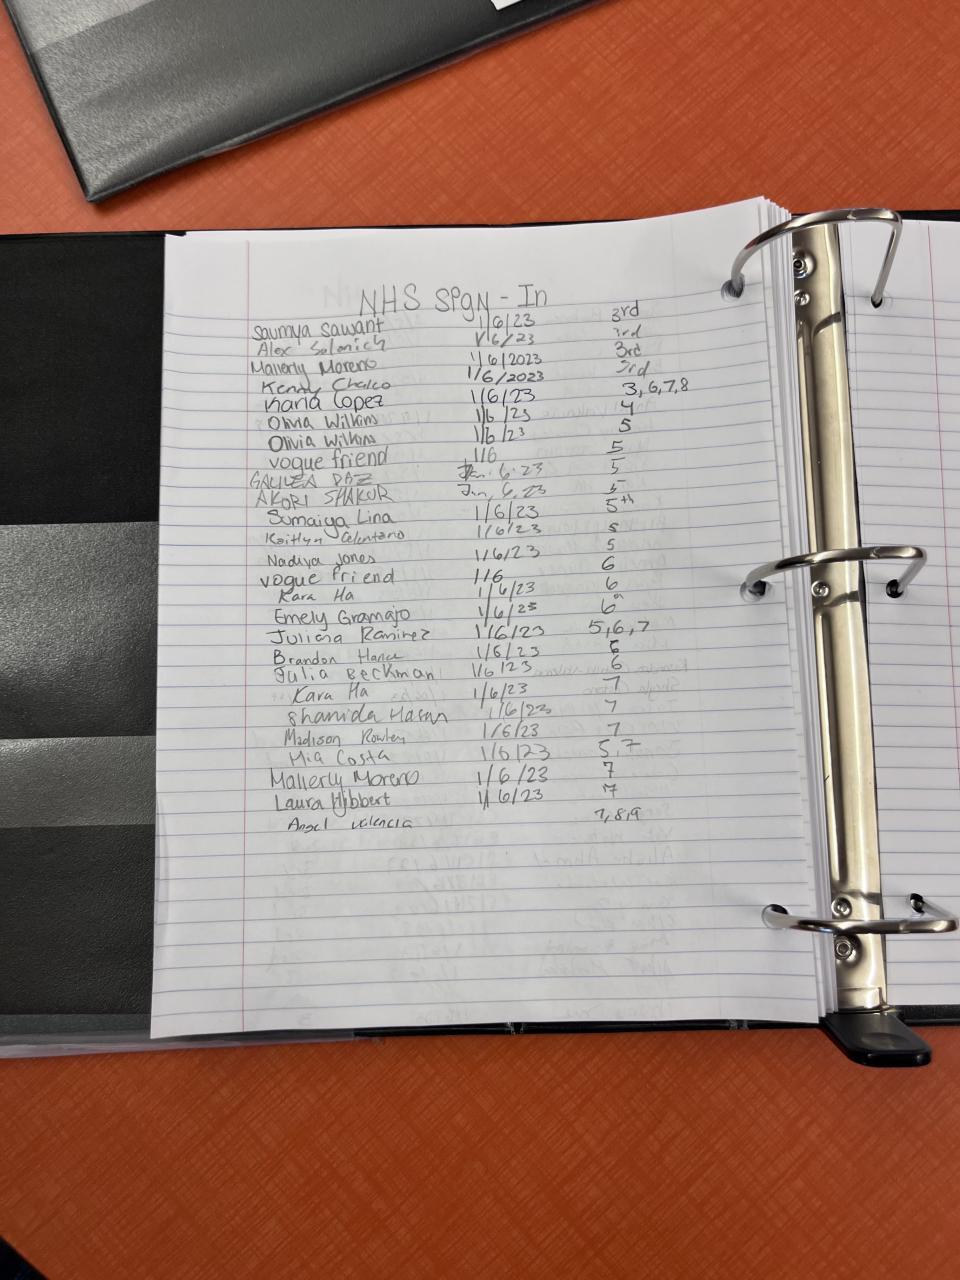 NHS SIgN - In
Saumya Sawant 1/6/23 3rd
Alex Solonich 1/6/23 3rd
Mallerly Moreno 1/6/2023 3rd
Kenny Chalco 1/6/2023 3rd
Karla Lopez 1/6/23 3,6,7,8
Olivia Wilkins 1/6/23 4
Olivia Wilkins 1/6/23 5
vogue friend 1/6 5
GALILEA DAZ Jan. 6. 23 5
AKORI SHAKUR Jan, 6, 23 5
Sumaiya Lina 1/6/23 5th
Kaitlyn 1/6/23 5
Nadiya Jones 1/6/23 5
vogue friend 1/6 6
Kara Ha 1/6/23 6
Emely Gramajo 1/6/23 6
Juliana Ramirez 1/6/23 5,6,7
Brandon 1/6/23 6
Julia Beckman 1/6/23 6
Kara Ha 1/6/23 7
Shanida Hasan 1/6/23 7
Madison Rowley 1/6/23 7
Mia Costa 1/6/23 5,7
Mallerly Moreno 1/6/23 7
Laura Hibbert 1/6/23 7
Angel Valencia 7,8,9